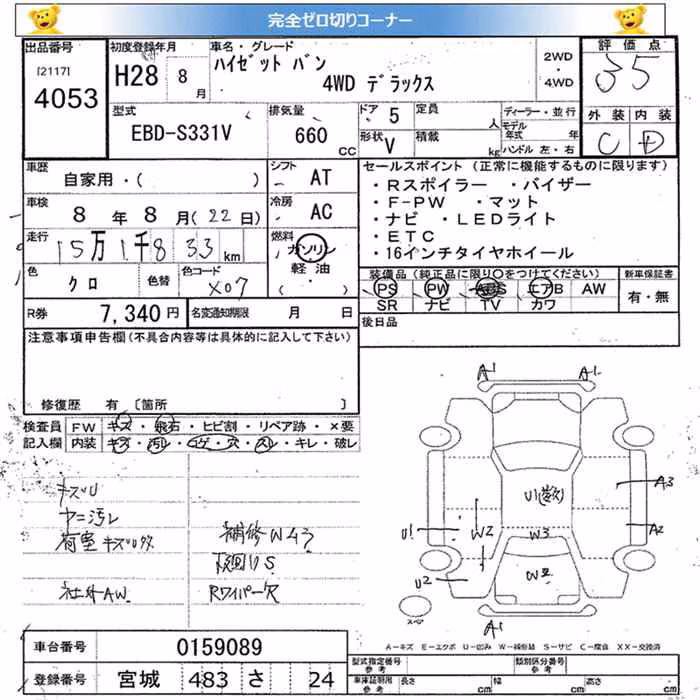 完全ゼロ切りコーナー
出品番号
[2117]
4053
初度登録年月
H28 8 月
車名・グレード
ハイゼット バン
4WD デラックス
2WD
・
4WD
評価点
3.5
外装 内装
C D
型式
EBD-S331V
排気量
660 CC
ドア 5
形状 V
定員 人
積載 kg
ディーラー・並行
モデル年式 年
ハンドル 左・右
車歴
自家用・( )
シフト AT
車検
8 年 8 月(22日)
冷房 AC
走行
15万1千833 km
燃料
ガソリン
軽油
( ・ )
色 クロ
色替
色コード X07
R券 7,340 円
名変通知期限 月 日
セールスポイント (正常に機能するものに限ります)
・Rスポイラー ・バイザー
・F-PW ・マット
・ナビ ・LEDライト
・ETC
・16インチタイヤホイール
装備品 (純正品に限り○をつけてください)
PS PW ABS エアB AW
SR ナビ TV カワ
新車保証書
有・無
後日品
注意事項申告欄 (不具合内容等は具体的に記入して下さい)
修復歴 有 [箇所 ]
検査員記入欄
FW キズ・飛石・ヒビ割・リペア跡・×要
内装 キズ・汚れ・コゲ・穴・スレ・キレ・破レ
キズU
ヤニ汚レ
荷室キズU
社外AW
補修W
下回りS
Rワイパー欠
A1 A1
U1
A3
U1 W2 W3 A2
U2 W2
A1
スペア
A=キズ E=エクボ U=凹み W=補修跡 S=サビ C=腐食 XX=交換済
車台番号 0159089
登録番号 宮城 483 さ 24
型式指定番号 参考
類別区分番号 参考
車体証明用 参考
長さ cm 幅 cm 高さ cm